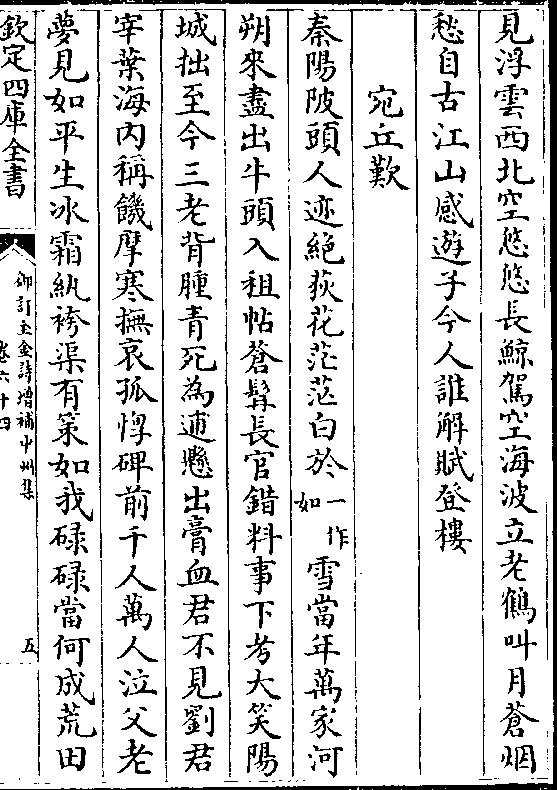 見浮雲西北空悠悠長鯨駕空海波立老鶴叫月蒼烟
愁自古江山感遊子今人誰解賦登樓
宛丘歎
秦陽陂頭人迹絶荻花茫茫白於一作如雪當年萬家河
朔來盡出牛頭入租帖蒼髯長官錯料事下考大笑陽
城拙至今三老背腫青死為逋懸出膏血君不見劉君
宰葉海内稱饑摩寒撫哀孤惸碑前千人萬人泣父老
夢見如平生冰霜紈袴渠有策如我碌碌當何成荒田
欽定四庫全書
御訂全金詩增補中州集
卷六十四
五